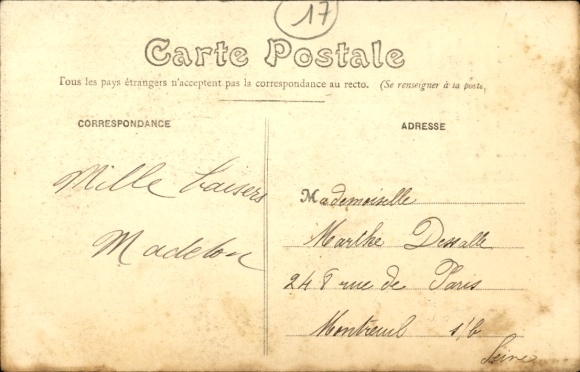 17
Carte Postale
Tous les pays étrangers n'acceptent pas la correspondance au recto. (Se renseigner à la poste,
CORRESPONDANCE
ADRESSE
Mille baisers
Madelon
Mademoiselle
Marthe Dessalle
248 rue de Paris
Montreuil s/b
Seine